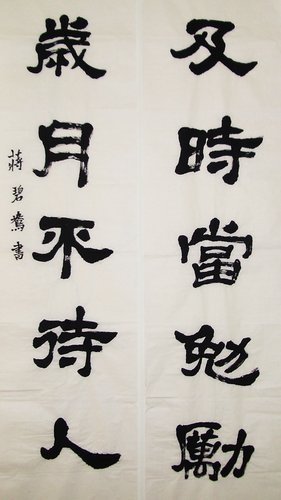 及時當勉勵
歲月不待人
蔣碧鶯書